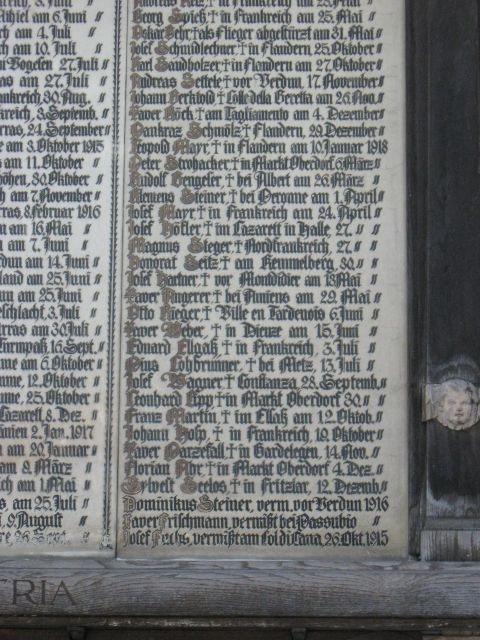 reich, 8. Juni "
Mihiel am 6. Juni "
ch am 4. Juli "
ch am 10. Juli "
in Vogesen 27. Juli "
as am 27. Juli "
ankreich 30. Aug. "
reich, 3. Septemb. "
rras, 24. September "
e am 3. Oktober 1915
s am 11. Oktober "
öhen, 30. Oktober "
ch am 7. November "
rras, 8. Februar 1916
n am 16. Mai "
am 7. Juni "
dun am 14. Juni "
land am 25. Juni "
un am 25. Juni "
schlacht, 3. Juli "
rras am 30. Juli "
Turmpaß 16. Sept. "
me am 6. Oktober "
mme, 12. Oktober "
me, 25. Oktober "
Lazarett, 8. Dez. "
änien 2. Jan. 1917
am 20. Januar "
am 8. März "
s, am 25. Juli "
, 9. August "
re, 26. Sept. "
TRIA
in Frankreich am 25. Mai "
Georg Spieß, † in Frankreich am 25. Mai "
Oskar Fehr † als Flieger abgestürzt am 31. Mai "
Josef Schmidlechner † in Flandern, 25. Oktober "
Karl Sandholzer † in Flandern am 27. Oktober "
Andreas Settele † vor Verdun, 17. November "
Johann Berktold † Colle della Beretta am 26. Nov. "
Xaver Böck † am Tagliamento am 4. Dezember "
Pankraz Schmölz † Flandern, 29. Dezember "
Leopold Mayr, † in Flandern am 10. Januar 1918
Peter Strohacker † in Markt Oberdorf 6. März "
Rudolf Gengeler, † bei Albert am 26. März "
Klemens Steiner, † bei Peronne am 1. April "
Josef Mayr † in Frankreich am 24. April "
Josef Höfler, † im Lazarett in Halle 27. " "
Magnus Steger, † Nordfrankreich, 27. " "
Honorat Seitz † am Kemmelberg, 30. " "
Josef Hartner, † vor Montdidier am 18. Mai "
Xaver Angerer, † bei Amiens am 29. Mai "
Otto Rieger, † Ville en Tardenois 6. Juni "
Xaver Weber, † in Dieuze am 15. Juni "
Eduard Ellgaß † in Frankreich, 3. Juli "
Pius Lohbrunner, † bei Metz, 13. Juli "
Josef Wagner † Constanza, 28. Septemb. "
Leonhard Epp † in Markt Oberdorf 30. " "
Franz Martin, † im Elsaß am 12. Oktob. "
Johann Holp, † in Frankreich, 19. Oktober "
Xaver Barzefall, † in Gardelegen, 14. Nov. "
Florian Ahr, † in Markt Oberdorf 4. Dez. "
Sylvest Seelos, † in Fritzlar, 12. Dezemb. "
Dominikus Steiner, verm. vor Verdun 1916
Xaver Frischmann, vermißt bei Passubio "
Josef Fuchs, vermißt am Col di Lana, 26. Okt. 1915